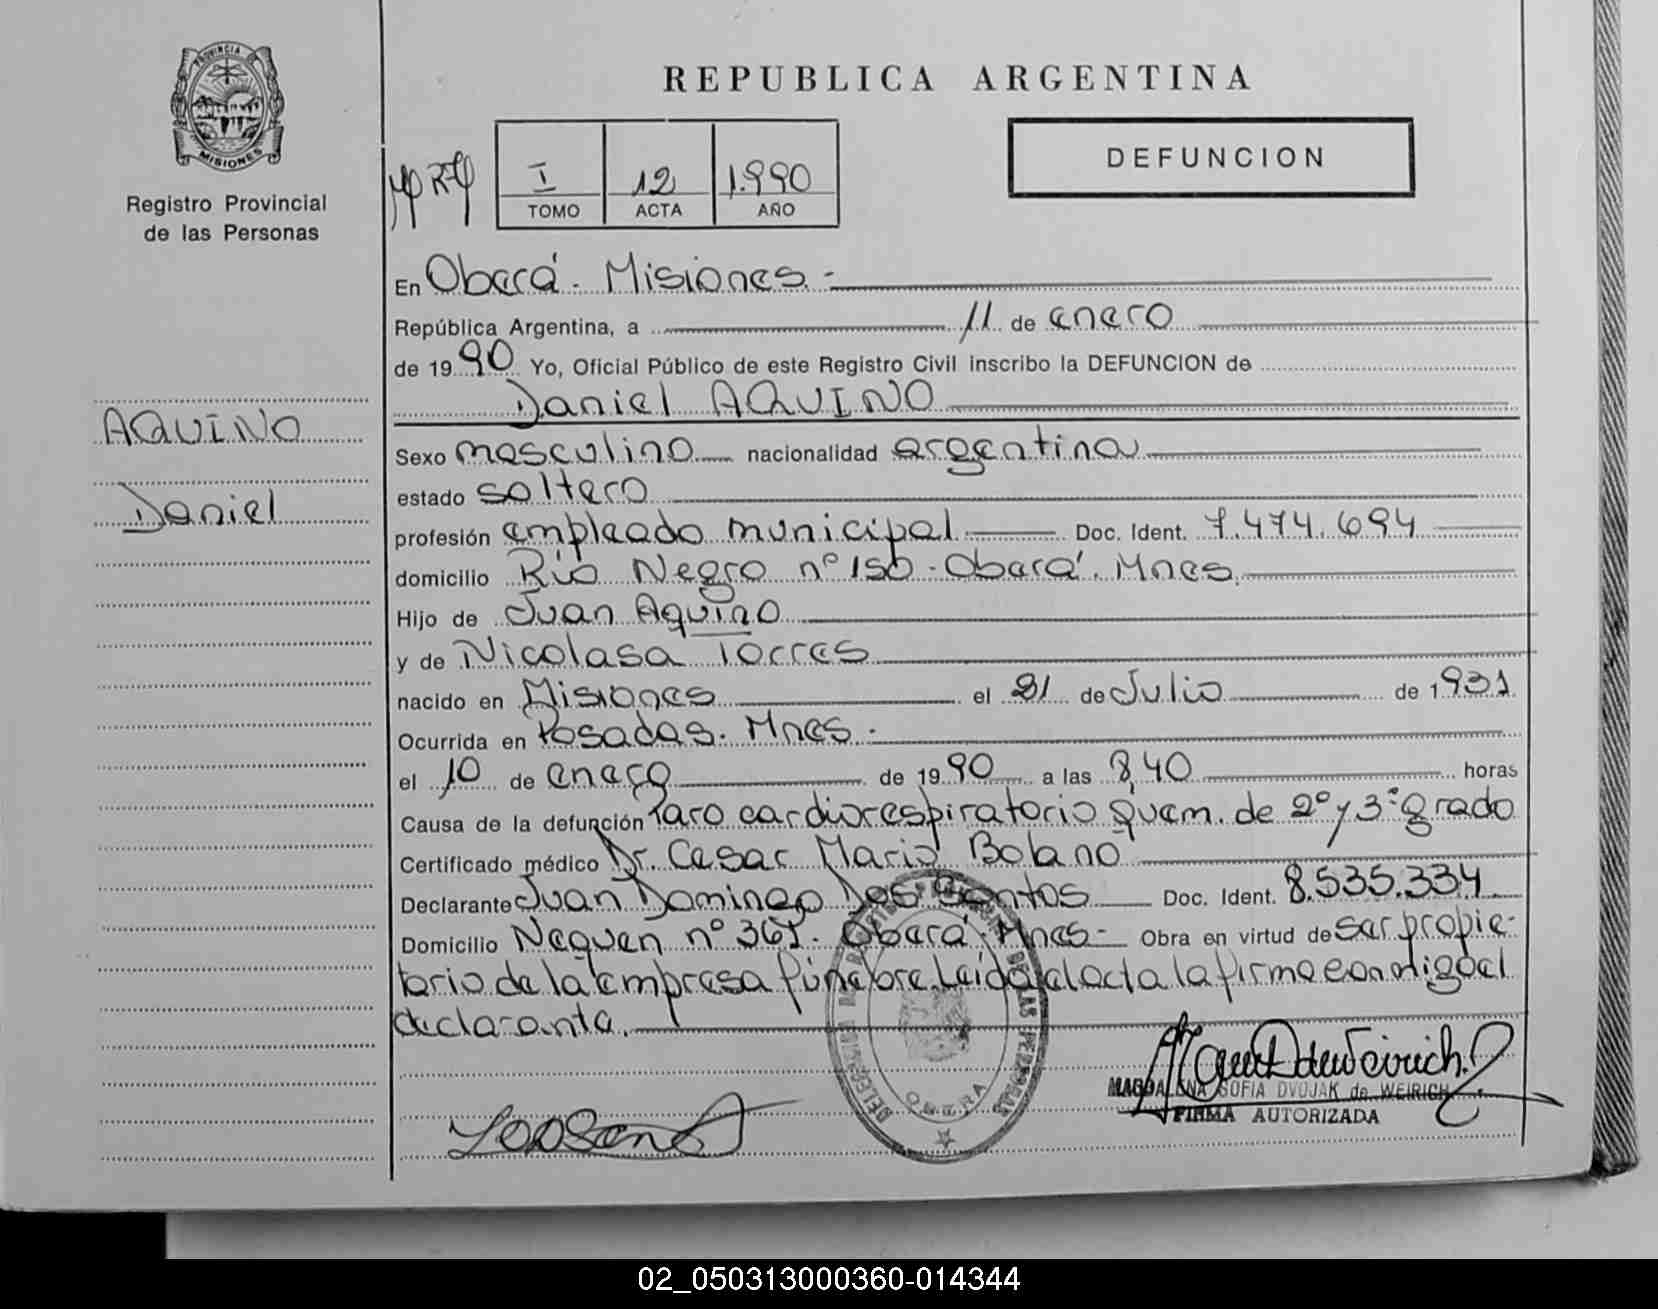 PROVINCIA DE
MISIONES
Registro Provincial
de las Personas
AQUINO
Daniel
REPUBLICA ARGENTINA
I 12 1.990
TOMO ACTA AÑO
DEFUNCION
En Oberá. Misiones.-
República Argentina, a 11 de enero
de 1990 Yo, Oficial Público de este Registro Civil inscribo la DEFUNCION de
Daniel AQUINO
Sexo masculino nacionalidad argentina
estado soltero
profesión empleado municipal Doc. Ident. 7.474.694
domicilio Rio Negro nº 150. Oberá. Mnes.
Hijo de Juan Aquino
y de Nicolasa Torres
nacido en Misiones el 21 de Julio de 1931
Ocurrida en Posadas. Mnes.
el 10 de enero de 1990 a las 8,40 horas
Causa de la defunción Paro cardiorespiratorio quem. de 2º y 3º grado
Certificado médico Dr. Cesar Mario Bolano
Declarante Juan Domingo Dos Santos Doc. Ident. 8.535.334
Domicilio Nequen nº 365. Oberá. Mnes- Obra en virtud de ser propie-
tario de la empresa fúnebre. Leída el acta la firma conmigo el
declarante.
OBERA
MAGDALENA SOFIA DVOJAK de WEIRICH
FIRMA AUTORIZADA
02_050313000360-014344